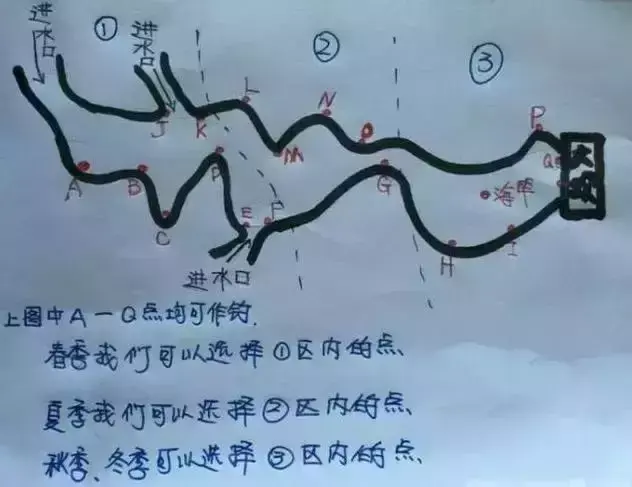 进水口
①
进水口
②
③
L
N
P
J
K
O
大坝
M
Q
A
B
D
G
海竿
C
E
F
H
I
进水口
上图中A一Q点均可作钓.
春季我们可以选择①区内的点、
夏季我们可以选择②区内的点、
秋季、冬季可以选择③区内的点、